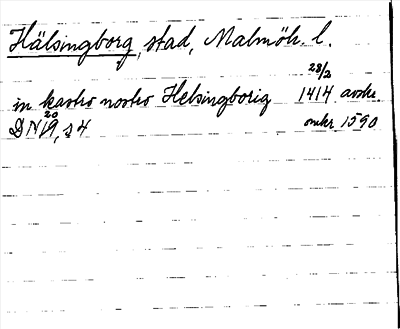 Hälsingborg, stad, Malmöh. l.
28/2
in kastro nostro Helsingborig 1414 avskr.
DN 20
19, s 4 omkr 1590